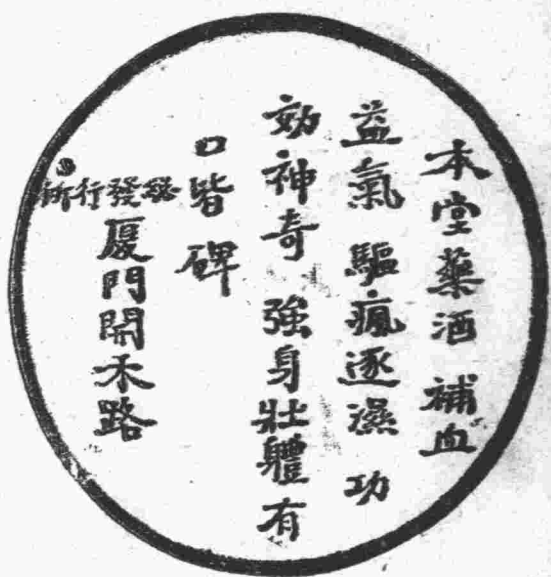 本堂藥酒 補血
益氣 驅瘋逐濕 功
効神奇 強身壯體有
口皆碑
總發行所
廈門開禾路